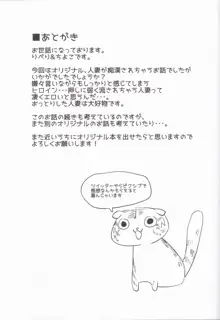 ■あとがき
お世話になっております。
りぺり&ちよこです。
今回はオリジナル、人妻が痴漢されちゃうお話でしたが
いかがでしたでしょうか?
嫌々言いながらもしっかりと感じてしまう
ヒロイン…押しに弱く流されちゃう人妻って
凄くエロいと思ちんだ…。
おっとりした人妻は大好物です。
このお話の続きも考えているのですが、
また別のオリジナルのお話も考えていたり…。
また近いうちにオリジナル本を出せたらと思いますので
よろしくお願いします!
ツイッターやピクシブで
感想なんかもくれると
喜んじゃいます